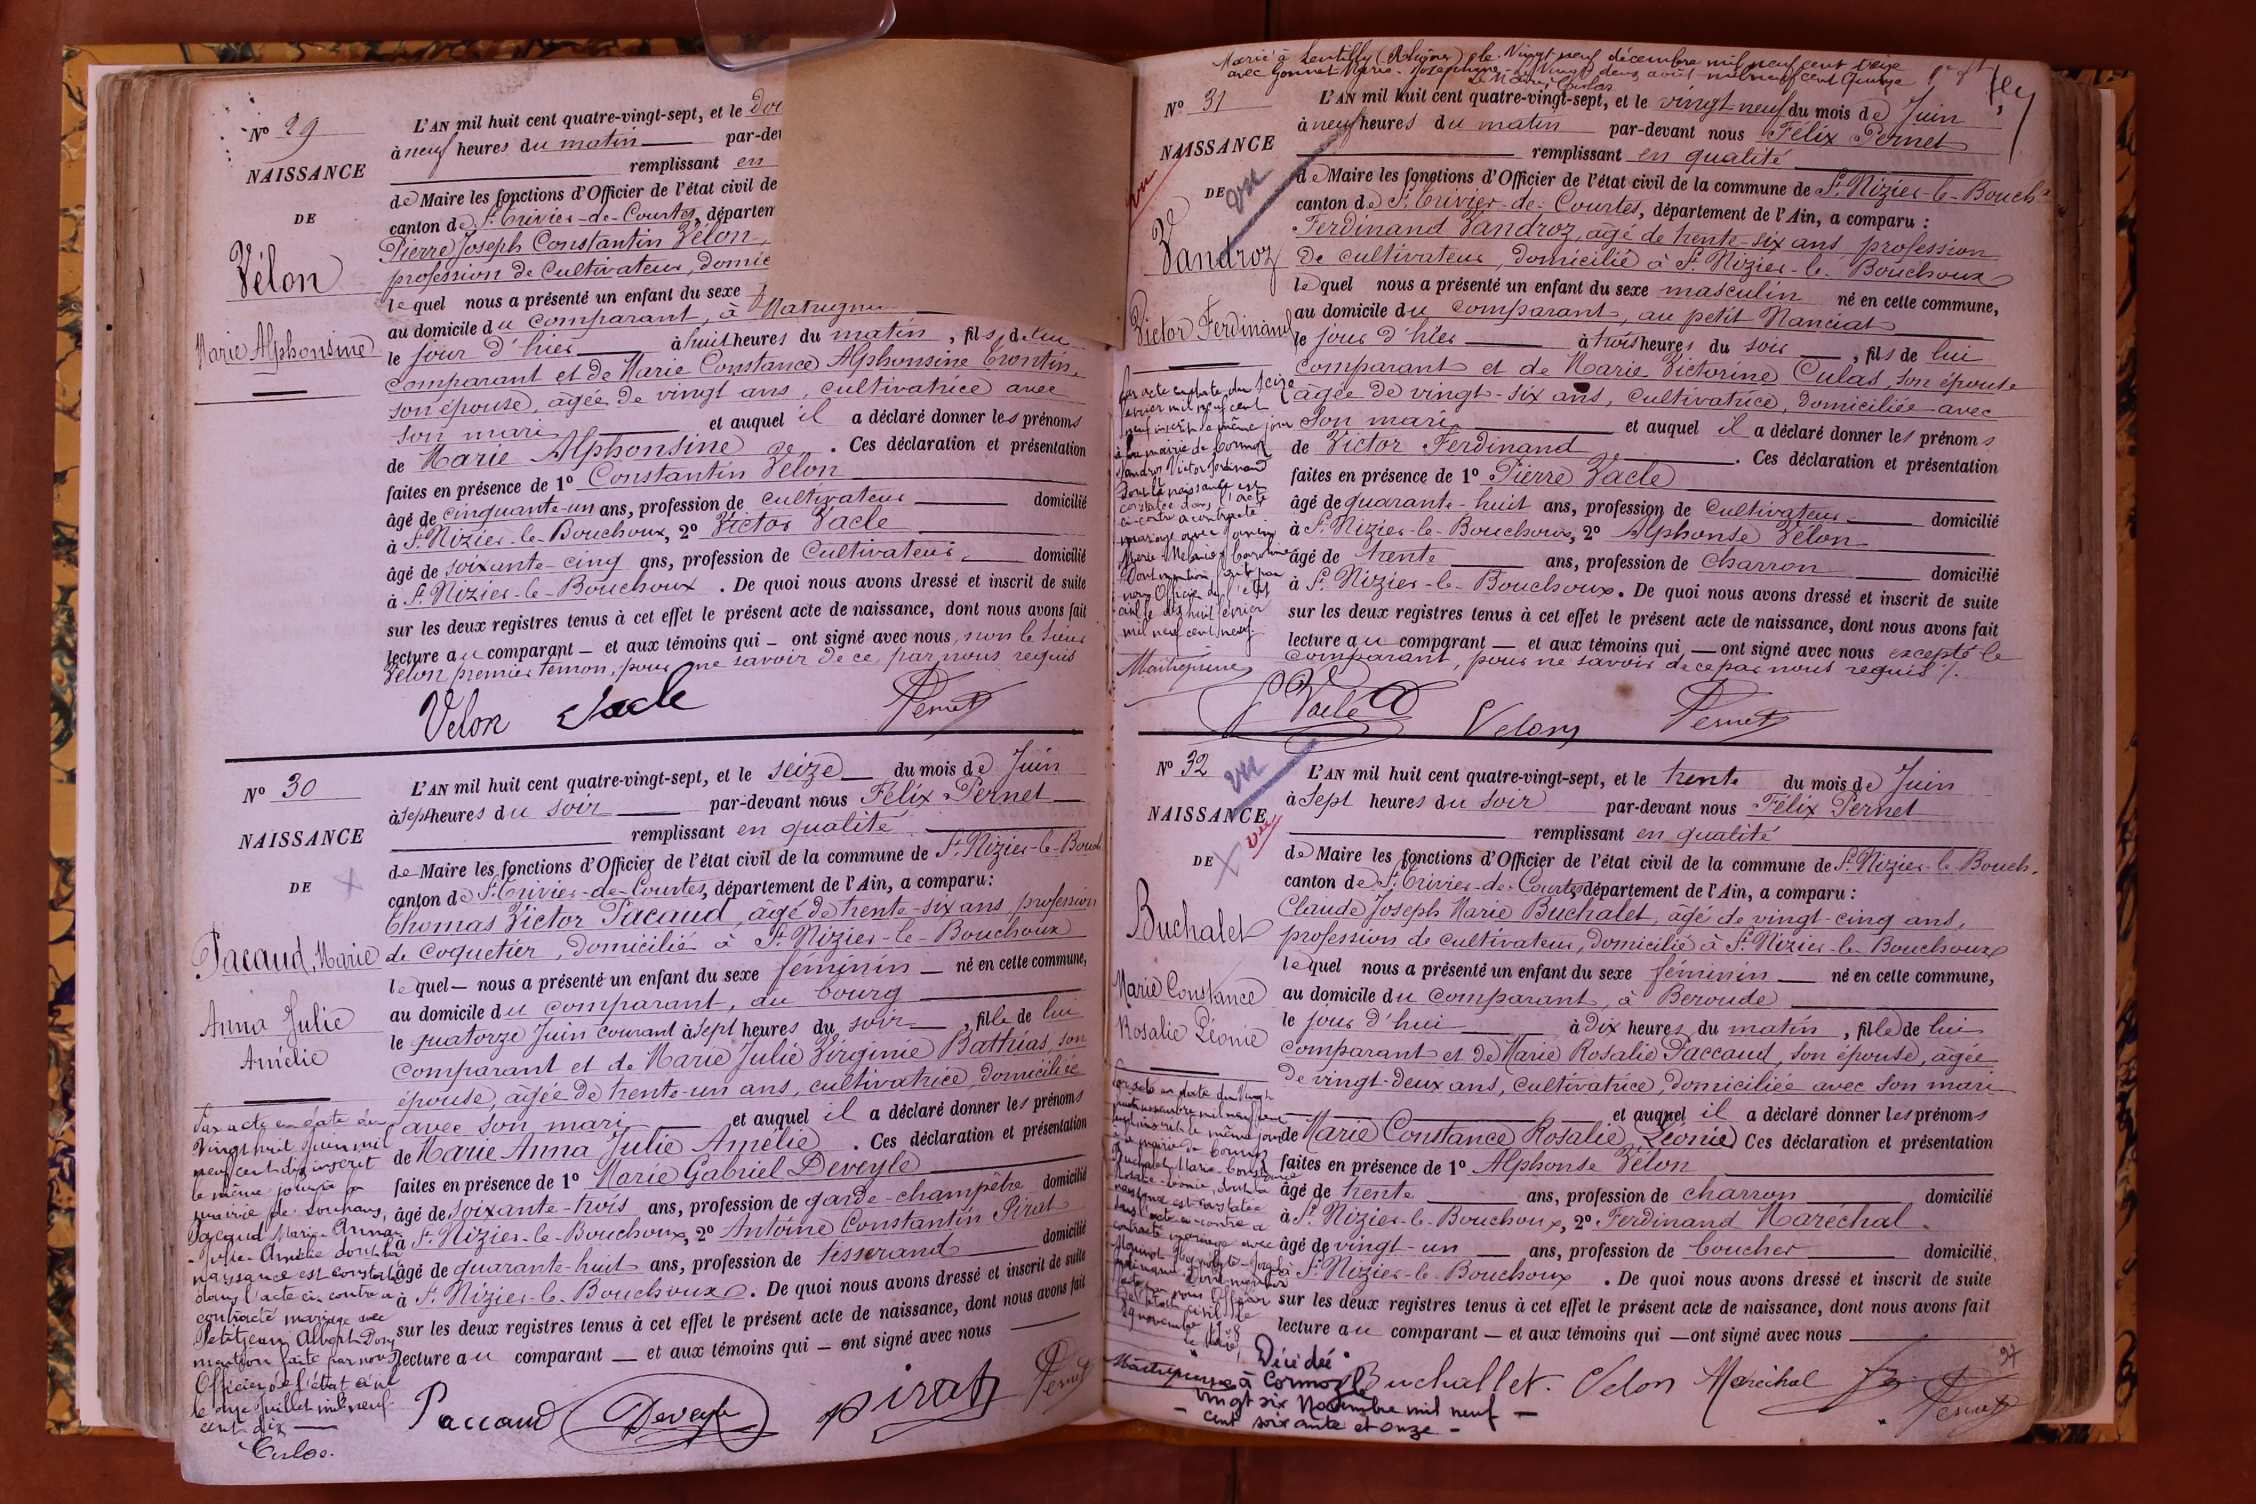 Nº 29
NAISSANCE
DE
Vélon
Marie Alphonsine
L'AN mil huit cent quatre-vingt-sept, et le
à neuf heures du matin par-dev
remplissant en
de Maire les fonctions d'Officier de l'état civil de
canton de St Trivier-de-Courtes, départem
Pierre Joseph Constantin Vélon,
profession de Cultivateur, domic
lequel nous a présenté un enfant du sexe
au domicile du comparant, à
le jour d'hier à huit heures du matin, fils de lui
comparant et de Marie Constance Alphonsine
son épouse, âgée de vingt ans, cultivatrice avec
son mari et auquel il a déclaré donner les prénoms
de Marie Alphonsine . Ces déclaration et présentation
faites en présence de 1º Constantin Vélon
âgé de cinquante-un ans, profession de cultivateur domicilié
à St Nizier-le-Bouchoux, 2º Victor Vacle
âgé de soixante-cinq ans, profession de Cultivateur domicilié
à St Nizier-le-Bouchoux . De quoi nous avons dressé et inscrit de suite
sur les deux registres tenus à cet effet le présent acte de naissance, dont nous avons fait
lecture au comparant – et aux témoins qui – ont signé avec nous, non le sieur
Vélon premier témoin, pour ne savoir de ce par nous requis
Velon Vacle Pernet
Nº 30
NAISSANCE
DE
Pacaud, Marie
Anna Julie
Amélie
L'AN mil huit cent quatre-vingt-sept, et le seize du mois de Juin
à sept heures du soir par-devant nous Félix Pernet
remplissant en qualité
de Maire les fonctions d'Officier de l'état civil de la commune de St Nizier-le-Bouch
canton de St Trivier-de-Courtes, département de l'Ain, a comparu :
Thomas Victor Pacaud, âgé de trente-six ans, profession
de coquetier, domicilié à St Nizier-le-Bouchoux
lequel – nous a présenté un enfant du sexe féminin – né en cette commune,
au domicile du comparant, au bourg
le quatorze Juin courant à sept heures du soir , fille de lui
comparant et de Marie Julie Virginie Bathias, son
épouse, âgée de trente-un ans, cultivatrice, domiciliée
avec son mari et auquel il a déclaré donner les prénoms
de Marie Anna Julie Amélie . Ces déclaration et présentation
faites en présence de 1º Marie Gabriel Deveyle
âgé de soixante-trois ans, profession de garde-champêtre domicilié
à St Nizier-le-Bouchoux, 2º Antoine Constantin Pirat
âgé de quarante-huit ans, profession de tisserand domicilié
à St Nizier-le-Bouchoux. De quoi nous avons dressé et inscrit de suite
sur les deux registres tenus à cet effet le présent acte de naissance, dont nous avons fait
lecture au comparant – et aux témoins qui – ont signé avec nous
Par acte en date du
vingt huit Juin mil
neuf cent dix inscrit
le même jour à la
mairie de Louhans,
Pacaud Marie Anna
Julie Amélie dont la
naissance est constatée
dans l'acte ci-contre a
contracté mariage avec
Petitjean Albert
mention faite par nous
Officier de l'état civil
le onze Juillet mil neuf
cent dix
Culas.
Paccaud Deveyle Pirat Pernet
Marié à Lentilly (Rhône) le Vingt neuf décembre mil neuf cent treize
avec Gonnet Marie Joséphine vingt deux août mil neuf cent quinze
Le Maire, Culas
Nº 31
NAISSANCE
DE
vu
vu
Vandroz
Victor Ferdinand
L'AN mil huit cent quatre-vingt-sept, et le vingt-neuf du mois de Juin
à neuf heures du matin par-devant nous Félix Pernet
remplissant en qualité
de Maire les fonctions d'Officier de l'état civil de la commune de St Nizier-le-Bouch
canton de St Trivier-de-Courtes, département de l'Ain, a comparu :
Ferdinand Vandroz, âgé de trente-six ans, profession
de cultivateur, domicilié à St Nizier-le-Bouchoux
lequel nous a présenté un enfant du sexe masculin né en cette commune,
au domicile du comparant, au petit Nanciat
le jour d'hier à trois heures du soir , fils de lui
comparant et de Marie Victorine Culas, son épouse
âgée de vingt-six ans, cultivatrice, domiciliée avec
son mari et auquel il a déclaré donner les prénoms
de Victor Ferdinand . Ces déclaration et présentation
faites en présence de 1º Pierre Vacle
âgé de quarante-huit ans, profession de Cultivateur domicilié
à St Nizier-le-Bouchoux, 2º Alphonse Vélon
âgé de trente ans, profession de charron domicilié
à St Nizier-le-Bouchoux. De quoi nous avons dressé et inscrit de suite
sur les deux registres tenus à cet effet le présent acte de naissance, dont nous avons fait
lecture au comparant – et aux témoins qui – ont signé avec nous excepté le
comparant, pour ne savoir de ce par nous requis
Par acte en date du seize
février mil neuf cent
neuf inscrit le même jour
à la mairie de Cormoz
Vandroz Victor Ferdinand
dont la naissance est
constatée dans l'acte
ci-contre a contracté
mariage avec
Marie Mélanie Caroline
Dont mention faite par
nous Officier de l'état
civil le dix huit février
mil neuf cent neuf.
Vacle Velon Pernet
Nº 32
NAISSANCE
DE
vu
vu
Buchalet
Marie Constance
Rosalie Léonie
L'AN mil huit cent quatre-vingt-sept, et le trente du mois de Juin
à sept heures du soir par-devant nous Félix Pernet
remplissant en qualité
de Maire les fonctions d'Officier de l'état civil de la commune de St Nizier-le-Bouch.
canton de St Trivier-de-Courtes, département de l'Ain, a comparu :
Claude Joseph Marie Buchalet, âgé de vingt-cinq ans,
profession de cultivateur, domicilié à St Nizier-le-Bouchoux
lequel nous a présenté un enfant du sexe féminin – né en cette commune,
au domicile du comparant, à Beroude
le jour d'hui à dix heures du matin , fille de lui
comparant et de Marie Rosalie Paccaud, son épouse, âgée
de vingt-deux ans, cultivatrice, domiciliée avec son mari
et auquel il a déclaré donner les prénoms
de Marie Constance Rosalie Léonie Ces déclaration et présentation
faites en présence de 1º Alphonse Vélon
âgé de trente ans, profession de charron domicilié
à St Nizier-le-Bouchoux, 2º Ferdinand Maréchal
âgé de vingt-un ans, profession de boucher domicilié
à St Nizier-le-Bouchoux . De quoi nous avons dressé et inscrit de suite
sur les deux registres tenus à cet effet le présent acte de naissance, dont nous avons fait
lecture au comparant – et aux témoins qui – ont signé avec nous
29 novembre 1908
le Maire,
Décédée
à Cormoz le
vingt six Novembre mil neuf
cent soixante et onze
Buchallet. Velon Maréchal Pernet